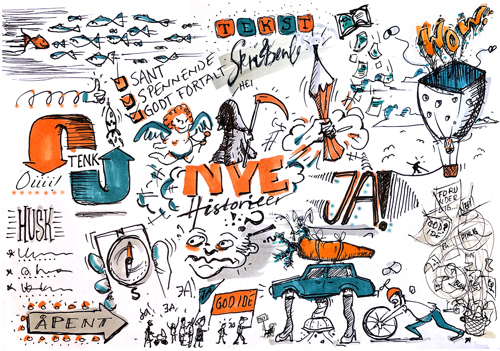 TEKST
Skribent
HEI
SANT
SPENNENDE
GODT FORTALT
WOW!
TENK
Oiiii!
NYE
Historier
JA!
?!
HUSK
ÅPENT
JA
JA
JA
GOD IDE
FORU
NDER